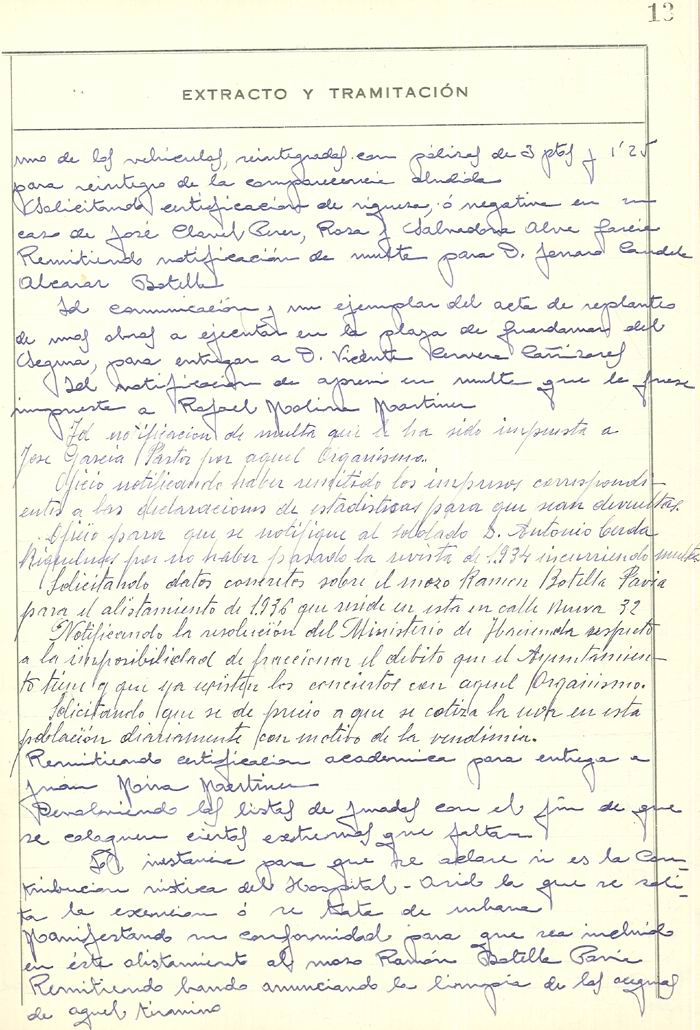 13
EXTRACTO Y TRAMITACIÓN
uno de los vehiculos, reintegrados con pólizas de 3 ptas y 1'25
para reintegro de la comparecencia aludida
Solicitando certificación de riqueza, ó negativa en su
caso de José Claret Perez, Rosa y Salvadora Alve García
Remitiendo notificación de multa para D. Jenaro Candela
Alcaraz Botella
Id comunicación y un ejemplar del acta de replanteo
de unas obras a ejecutar en la plaza de Guardamar del
Segura, para entregar a D. Vicente Cervera Cañizares
Id notificación de apremi en multa que le fuese
impuesta a Rafael Molina Martinez
Id notificacion de multa que le ha sido impuesta a
Jose Garcia Pastor por aquel Organismo.
Oficio notificando haber remitido los impresos correspondi-
entes a las declaraciones de estadisticas para que sean devueltas.
Oficio para que se notifique al soldado D. Antonio Cerda
Riquelme por no haber pasado la revista de 1.934 incurriendo multa
Solicitando datos concretos sobre el mozo Ramon Botella Pavia
para el alistamiento de 1.936 que reside en esta en calle Nueva 32
Notificando la resolución del Ministerio de Hacienda respecto
a la imposibilidad de fraccionar el debito que el Ayuntamien-
to tiene y que ya existen los conciertos con aquel Organismo.
Solicitando que se de precio a que se cotiza la uva en esta
población diariamente con motivo de la vendimia.
Remitiendo certificacion academica para entrega a
Juan Mira Martinez
Devolviendo las listas de Jurados con el fin de que
se coloquen ciertos extremos que faltan
Id instancia para que se aclare si es la Con-
tribucion rústica del Hospital-Asilo la que se soli-
ta la exencion ó se trata de urbana
Manifestando su conformidad para que sea incluido
en éste alistamiento al mozo Ramón Botella Pavia
Remitiendo bando anunciando la limpia de las acequias
de aquel término